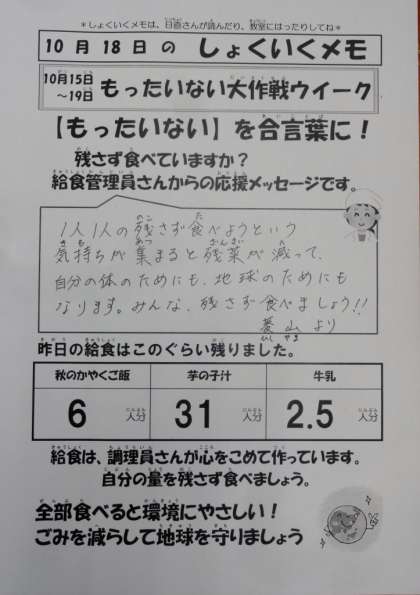 ＊しょくいくメモは、日直さんが読んだり、教室にはったりしてね＊
10月18日の しょくいくメモ
10月15日～19日 もったいない大作戦ウイーク
【もったいない】を合言葉に！
残さず食べていますか？
給食管理員さんからの応援メッセージです。
1人1人の残さず食べようという
気持ちが集まると残菜が減って、
自分の体のためにも、地球のためにも
なります。みんな、残さず食べましょう!!
菱山より
昨日の給食はこのぐらい残りました。
秋のかやくご飯 芋の子汁 牛乳
6人分 31人分 2.5人分
給食は、調理員さんが心をこめて作っています。
自分の量を残さず食べましょう。
全部食べると環境にやさしい！
ごみを減らして地球を守りましょう